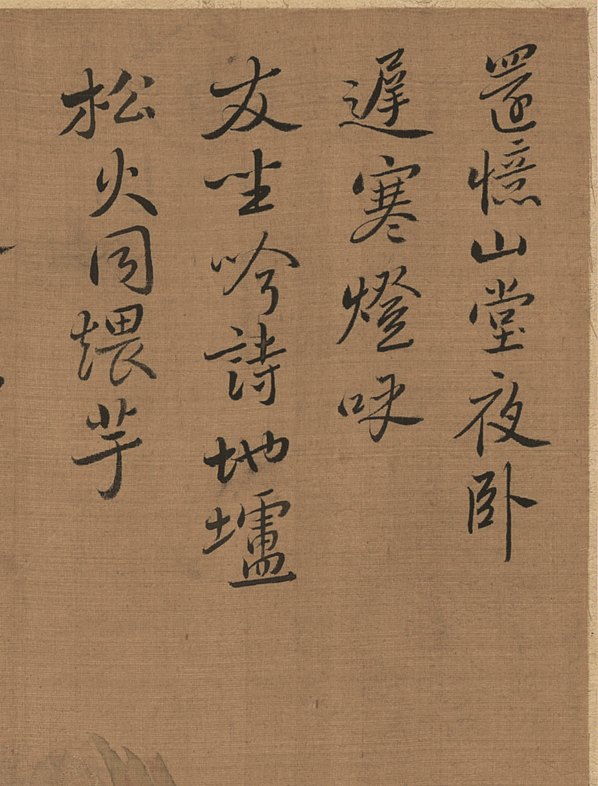 還憶山堂夜卧
遲寒燈
友坐吟詩地壚
松火同煨芋